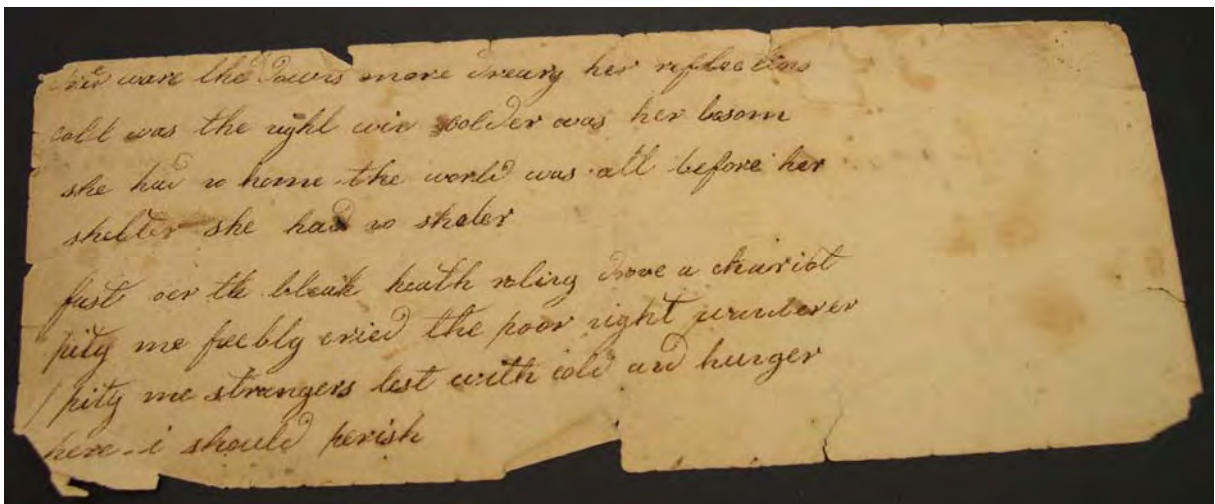 ware the Downs more dreary her reflections
cold was the night win colder was her bosom
she had no home the world was all before her
shelter she had no shaler
fast oer the bleak heath roling drove a chairiot
pity me feebly cried the poor night wanderer
pity me strangers lest with cold and hunger
here i should perish